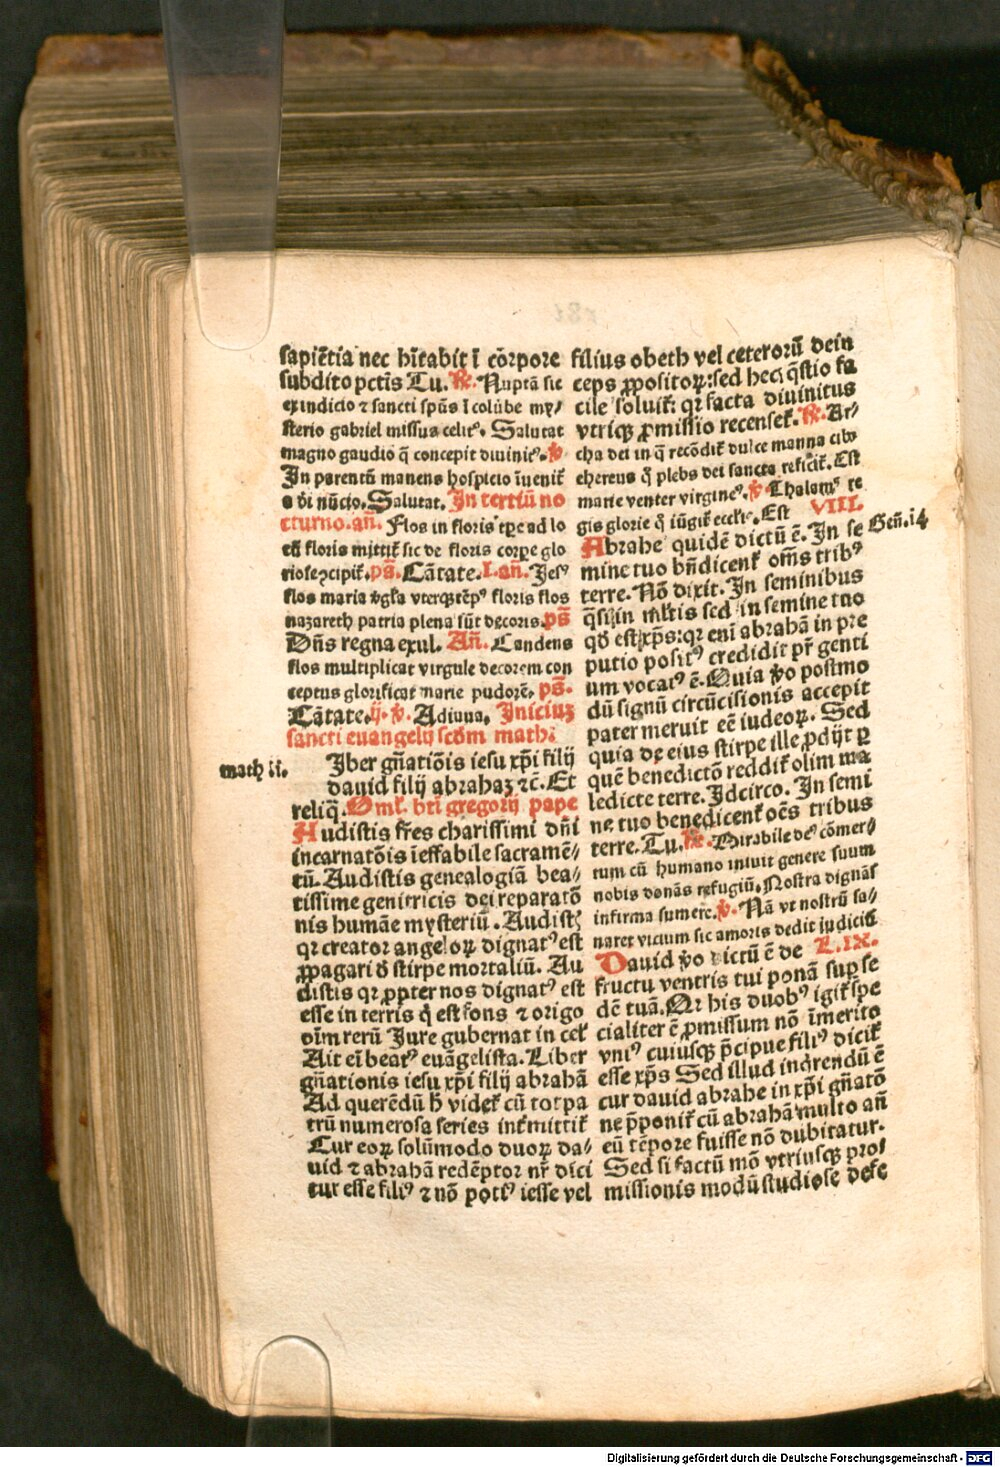 sapiētia nec hītabit ī cōrpore
subdito pctīs Tu. ℟. Nuptā sic
ex indicio ⁊ sancti spūs ī colūbe my/
sterio gabriel missus celitꝰ. Salutat
magno gaudio q̄ concepit diuinitꝰ. ℣
In parentū manens hospicio īuenit᷑
a dei nūcio. Salutat. In tertiū no
cturno. añ. Flos in floris tꝑe ad lo
cū floris mittit᷑ sic de floris corꝑe glo
riose ꝛcipit᷑. pš. Cātate. I. añ. Jesꝰ
flos maria ꝟgīa vterqꝫ tēpꝰ floris flos
nazareth patria plena sūt decoris. pš
Dñs regna exul. Añ. Candens
flos multiplicat virgule decorem con
ceptus glorificat marie pudorē. pš.
Cātate. ij. ℣. Adiuua. Iniciuꝫ
sancti euangelij scdm math.
math ii.
Iber gñatiōis iesu xp̄i filij
dauid filij abrahaꝫ ⁊c̄. Et
reliq̄. Omł. bti gregorij pape
Audistis fr̄es charissimi dñi
incarnatōis ieffabile sacramē/
tū. Audistis genealogiā bea/
tissime genitricis dei reparatō
nis humāe mysteriū. Audistꝭ
qꝛ creator angeloꝝ dignatꝰ est
ꝓpagari ō stirpe mortaliū. Au
distis qꝛ ꝓpter nos dignatꝰ est
esse in terris q̇ est fons ⁊ origo
oīm rerū Jure gubernat in cel᷑
Ait ei beatꝰ euāgelista. Liber
gñationis iesu xp̄i filij abrahā
Ad querēdū h̄ videt᷑ cū tot pa
trū numerosa series int᷑mittit᷑
Cur eoꝝ solūmodo duoꝝ da/
uid ⁊ abrahā redēptor nr̄ dici
tur esse filiꝰ ⁊ nō potiꝰ iesse vel
filius obeth vel ceterorū dein
ceps ꝓpositoꝝ: sed hec q̄stio fa
cile soluit᷑: qꝛ facta diuinitus
vtriqꝫ ꝓmissio recenset᷑. ℟. Ar/
cha dei in q̄ recōdit᷑ dulce manna cibꝰ
ethereus q̄ plebs dei sancta reficit᷑. Est
marie venter virgineꝰ. ℣. Thalamꝰ re
gis glorie q̄ iūgit᷑ ecclie. Est VIII.
Abrahe quidē dictū ē. In se
Geñ. i4
mine tuo bñdicent᷑ om̄s tribꝰ
terre. Nō dixit. In seminibus
q̄si in ml̄tis sed in semine tuo
qd̄ est xp̄s: qꝛ eni abrahā in pre
putio positꝰ credidit pr̄ genti
um vocatꝰ ē. Quia ꝟo postmo
dū signū circūcisionis accepit
pater meruit eē iudeoꝝ. Sed
quia de eius stirpe ille ꝓdijt ꝑ
quē benedictō reddit᷑ olim ma
ledicte terre. Idcirco. In semi
ne tuo benedicent᷑ oēs tribus
terre. Tu. ℟. Mirabile deꝰ cōmer/
tum cū humano iniuit genere suum
nobis donās refugiū. Nostra dignās
infirma sumere. ℣. Nā vt nostrū sa/
naret vicium sic amoris dedit iudiciū
Dauid ꝟo dictū ē de L. IX.
fructu ventris tui ponā suꝑ se
dē tuā. Qꝛ his duobꝰ igit᷑ spe
cialiter ē ꝓmissum nō īmerito
vniꝰ cuiusqꝫ p̄cipue filiꝰ dicit᷑
esse xp̄s Sed illud inq̄rendū ē
cur dauid abrahe in xp̄i gñatō
ne p̄ponit᷑ cū abrahā multo añ
eū tēpore fuisse nō dubitatur.
Sed si factū mō vtriusqꝫ pro/
missionis modū studiose defe
Digitalisierung gefördert durch die Deutsche Forschungsgemeinschaft - DFG